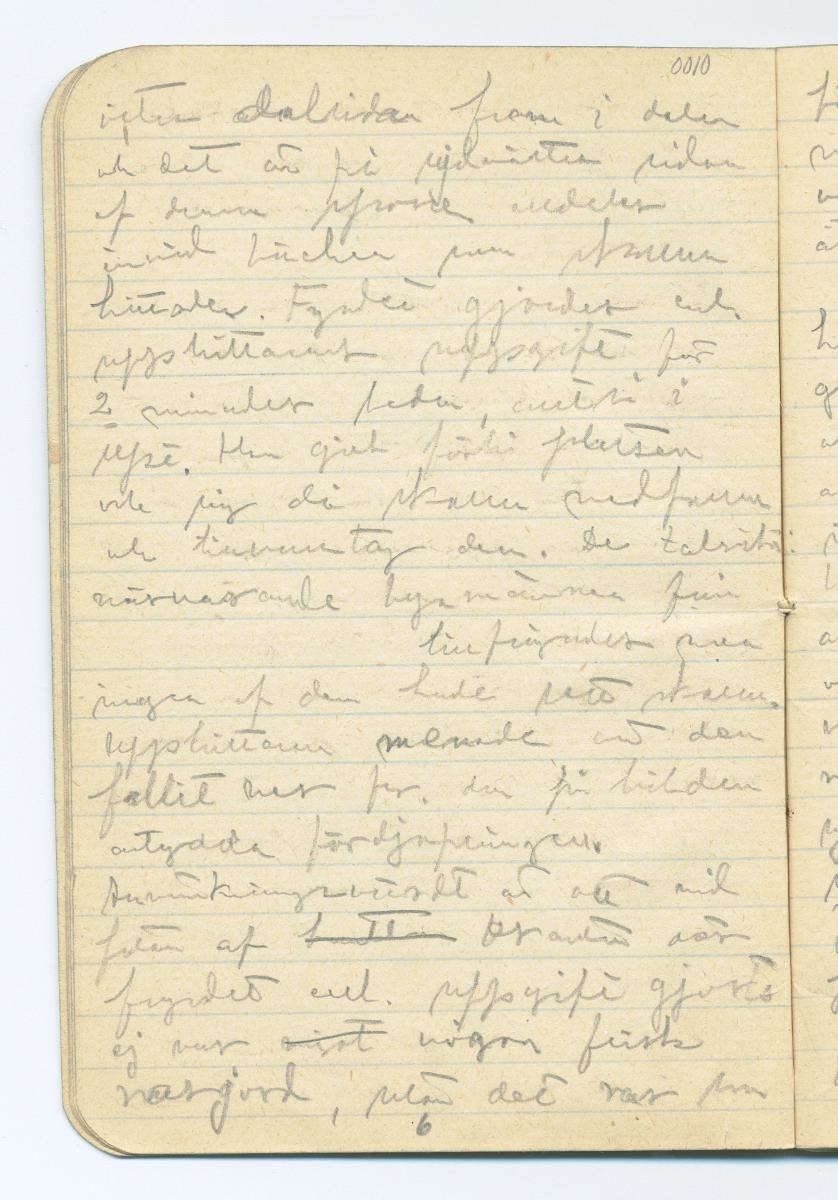 0010
dalsidan fram i dalen
och det är på sydvästra sidan
af denna
invid bäcken som skallen
hittades. Fyndet gjordes enl.
upphittarens uppgift för
2 månader sedan, anträ i
Han gick förbi platsen
och såg då skallen nedfallen
och tillvaratog den. De talrika
närvarande bymännen från
nera
ingen af dem hade sett skallen.
Upphittaren menade att den
fallit ner fr. den på bilden
antydda fördjupningen.
Anmärkningsvärdt är att vid
foten af branten där
fyndet enl. uppgift gjorts
ej var någon färsk
rasjord, utan det var
6